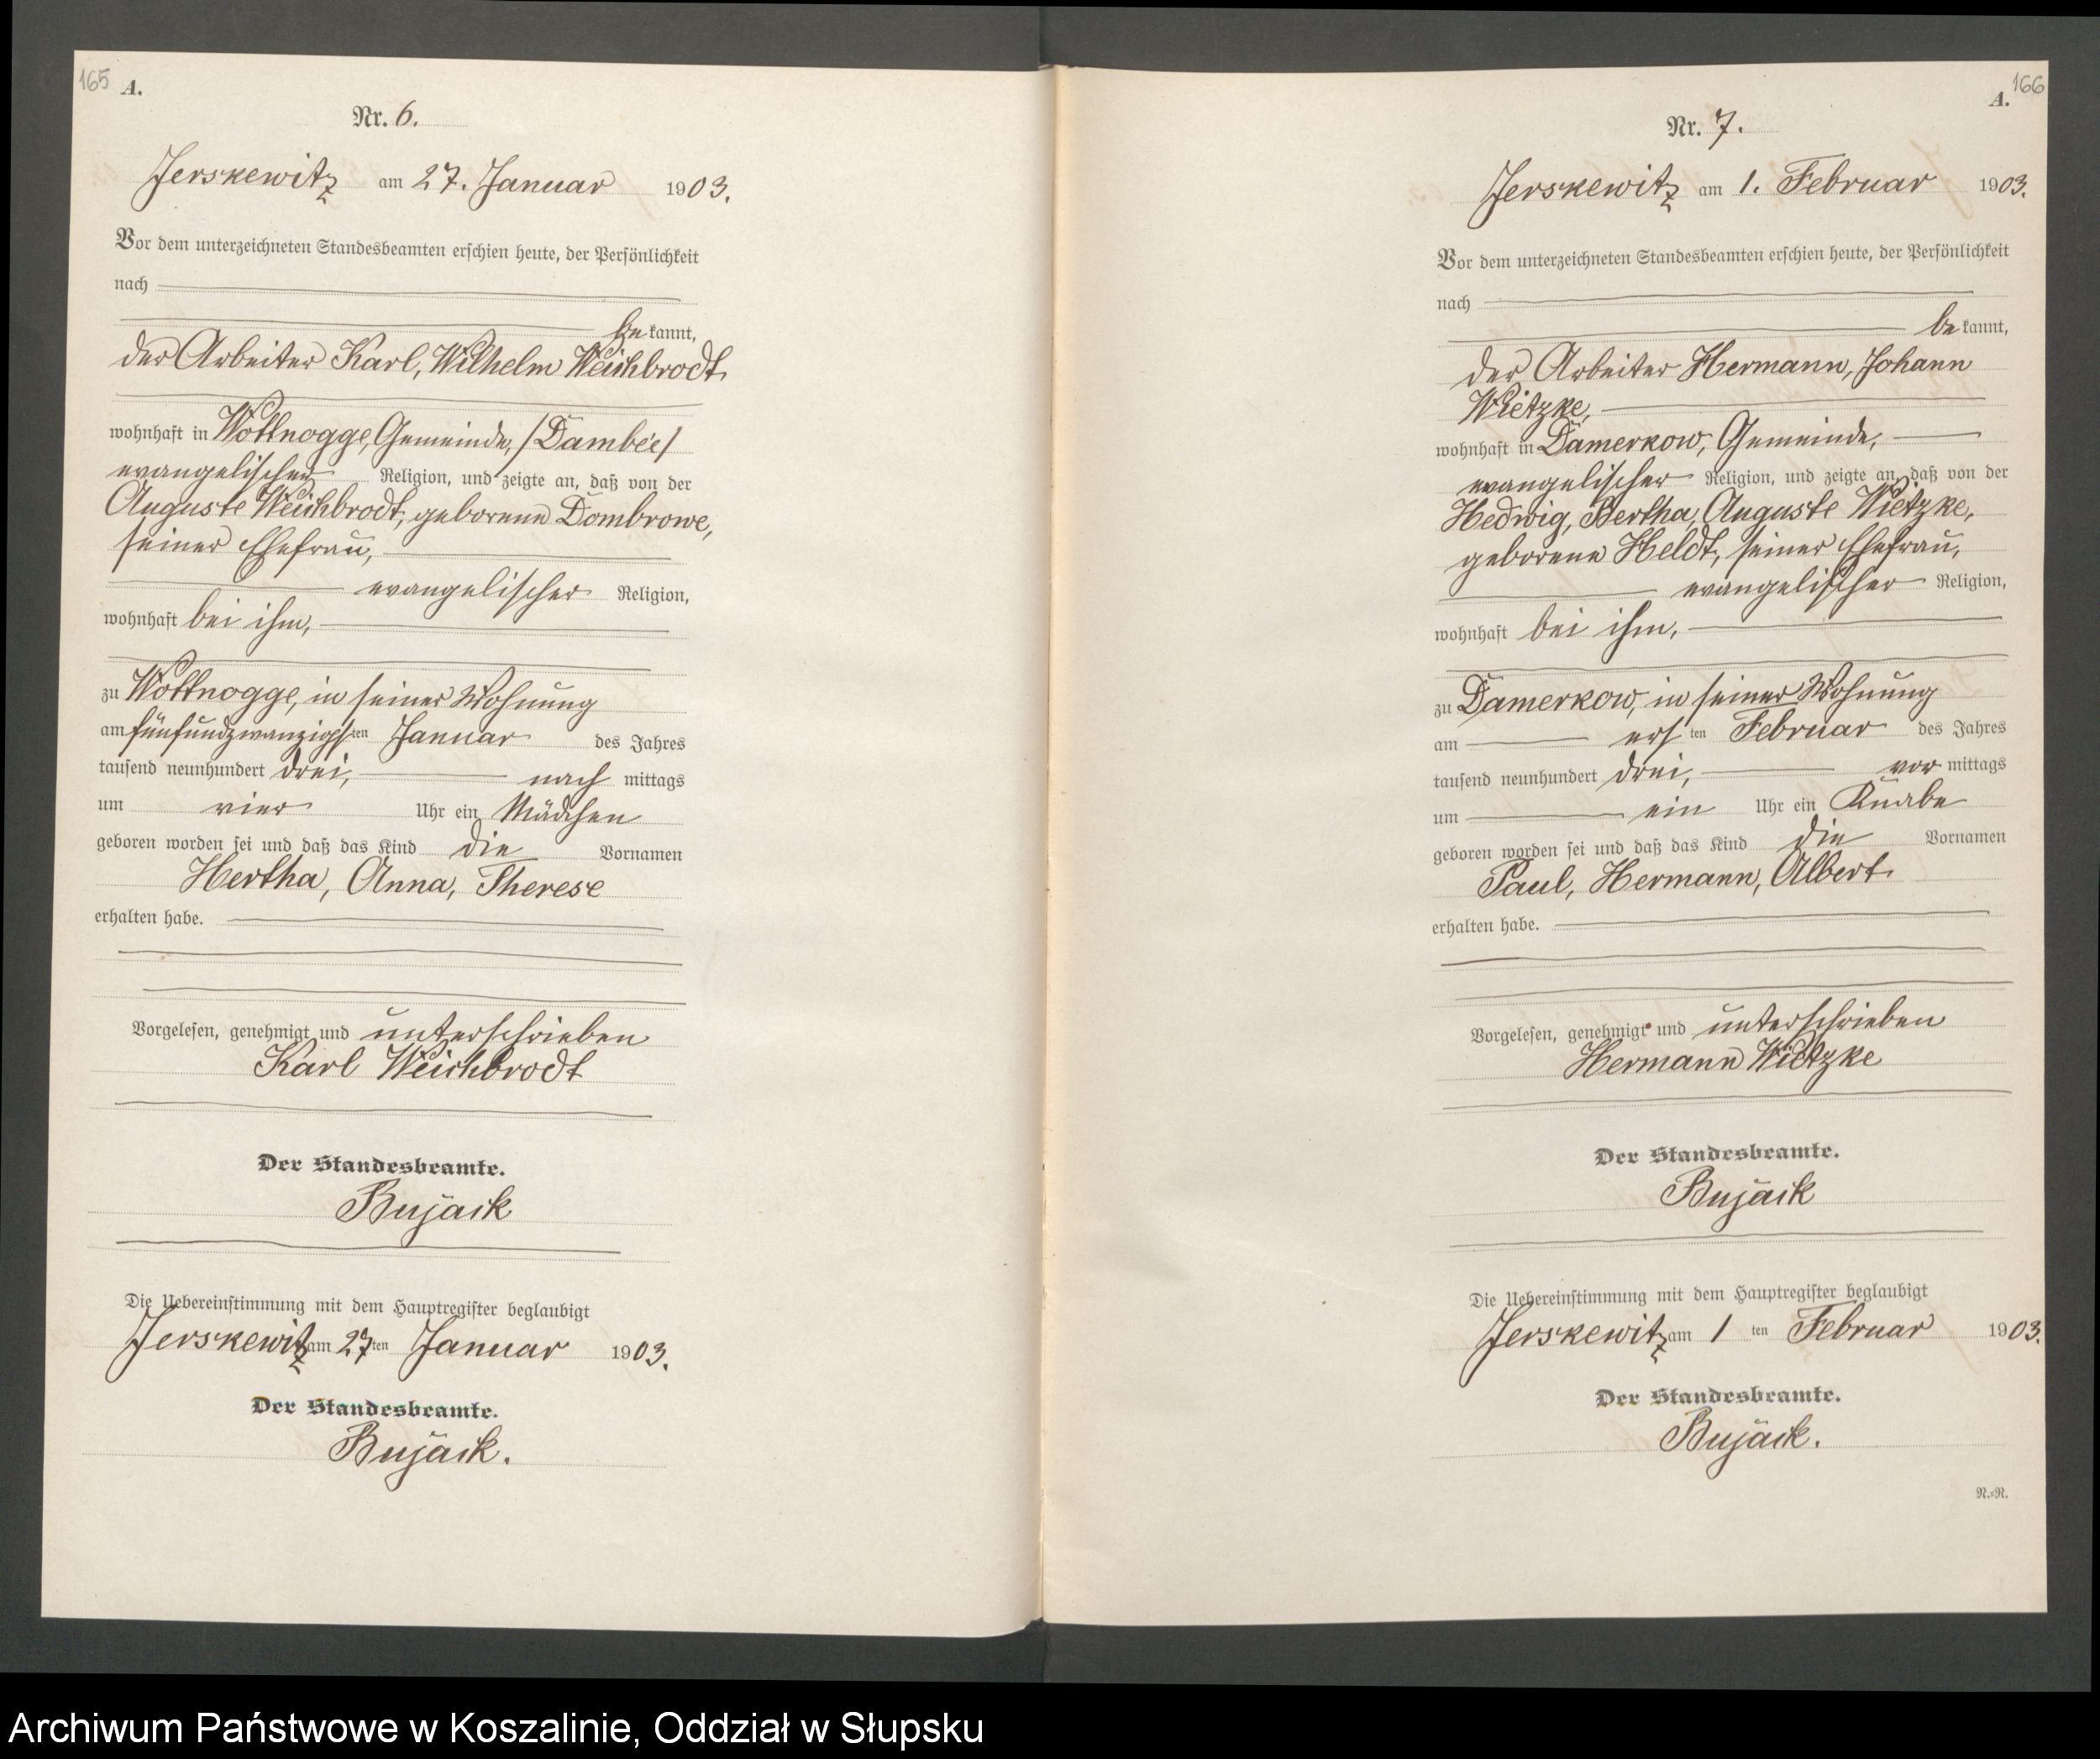 165 A.
Nr. 6.
Jerskewitz am 27. Januar 1903.
Vor dem unterzeichneten Standesbeamten erschien heute, der Persönlichkeit
nach
be kannt,
der Arbeiter Karl, Wilhelm Weichbrodt
wohnhaft in Wottnogge, Gemeinde, /Dambée/
evangelischer Religion, und zeigte an, daß von der
Auguste Weichbrodt, geborene Dombrowe,
seiner Ehefrau,
evangelischer Religion,
wohnhaft bei ihm,
zu Wottnogge, in seiner Wohnung
am fünfundzwanzigsten Januar des Jahres
tausend neunhundert drei, nach mittags
um vier Uhr ein Mädchen
geboren worden sei und daß das Kind die Vornamen
Hertha, Anna, Therese
erhalten habe.
Vorgelesen, genehmigt und unterschrieben
Karl Weichbrodt
Der Standesbeamte.
Bujack
Die Uebereinstimmung mit dem Hauptregister beglaubigt
Jerskewitz am 27ten Januar 1903.
Der Standesbeamte.
Bujack.
166
A.
Nr. 7.
Jerskewitz am 1. Februar 1903.
Vor dem unterzeichneten Standesbeamten erschien heute, der Persönlichkeit
nach
be kannt,
der Arbeiter Hermann, Johann
Wietzke,
wohnhaft in Damerkow, Gemeinde,
evangelischer Religion, und zeigte an, daß von der
Hedwig, Bertha, Auguste Wietzke,
geborene Heldt, seiner Ehefrau,
evangelischer Religion,
wohnhaft bei ihm,
zu Damerkow, in seiner Wohnung
am ers ten Februar des Jahres
tausend neunhundert drei, vor mittags
um ein Uhr ein Knabe
geboren worden sei und daß das Kind die Vornamen
Paul, Hermann, Albert
erhalten habe.
Vorgelesen, genehmigt und unterschrieben
Hermann Wietzke
Der Standesbeamte.
Bujack
Die Uebereinstimmung mit dem Hauptregister beglaubigt
Jerskewitz am 1 ten Februar 1903.
Der Standesbeamte.
Bujack.
N.=R.
Archiwum Państwowe w Koszalinie, Oddział w Słupsku